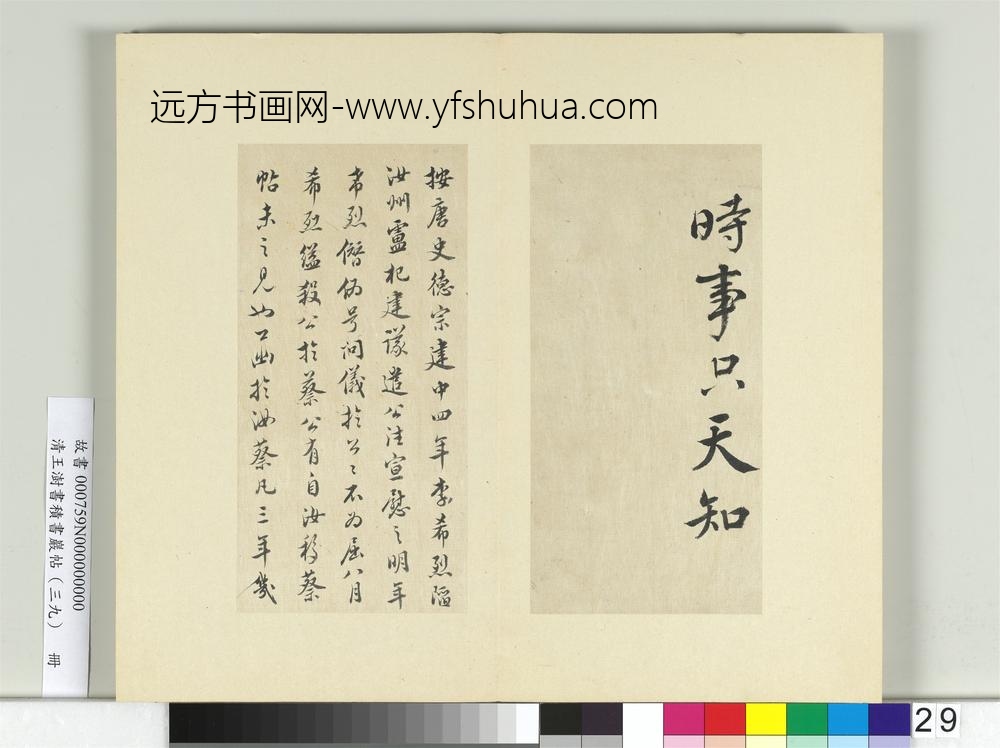 远方书画网-www.yfshuhua.com
時事只天知
按唐史德宗建中四年李希烈陷
汝州盧杞建議遣公往宣慰之明年
希烈僭偽号问儀於公〻不为屈八月
希烈縊殺公於蔡公有自汝移蔡
帖未之見也公幽於汝蔡凡三年幾
故書 000759N000000000
清王澍書積書巖帖(三九) 冊
29